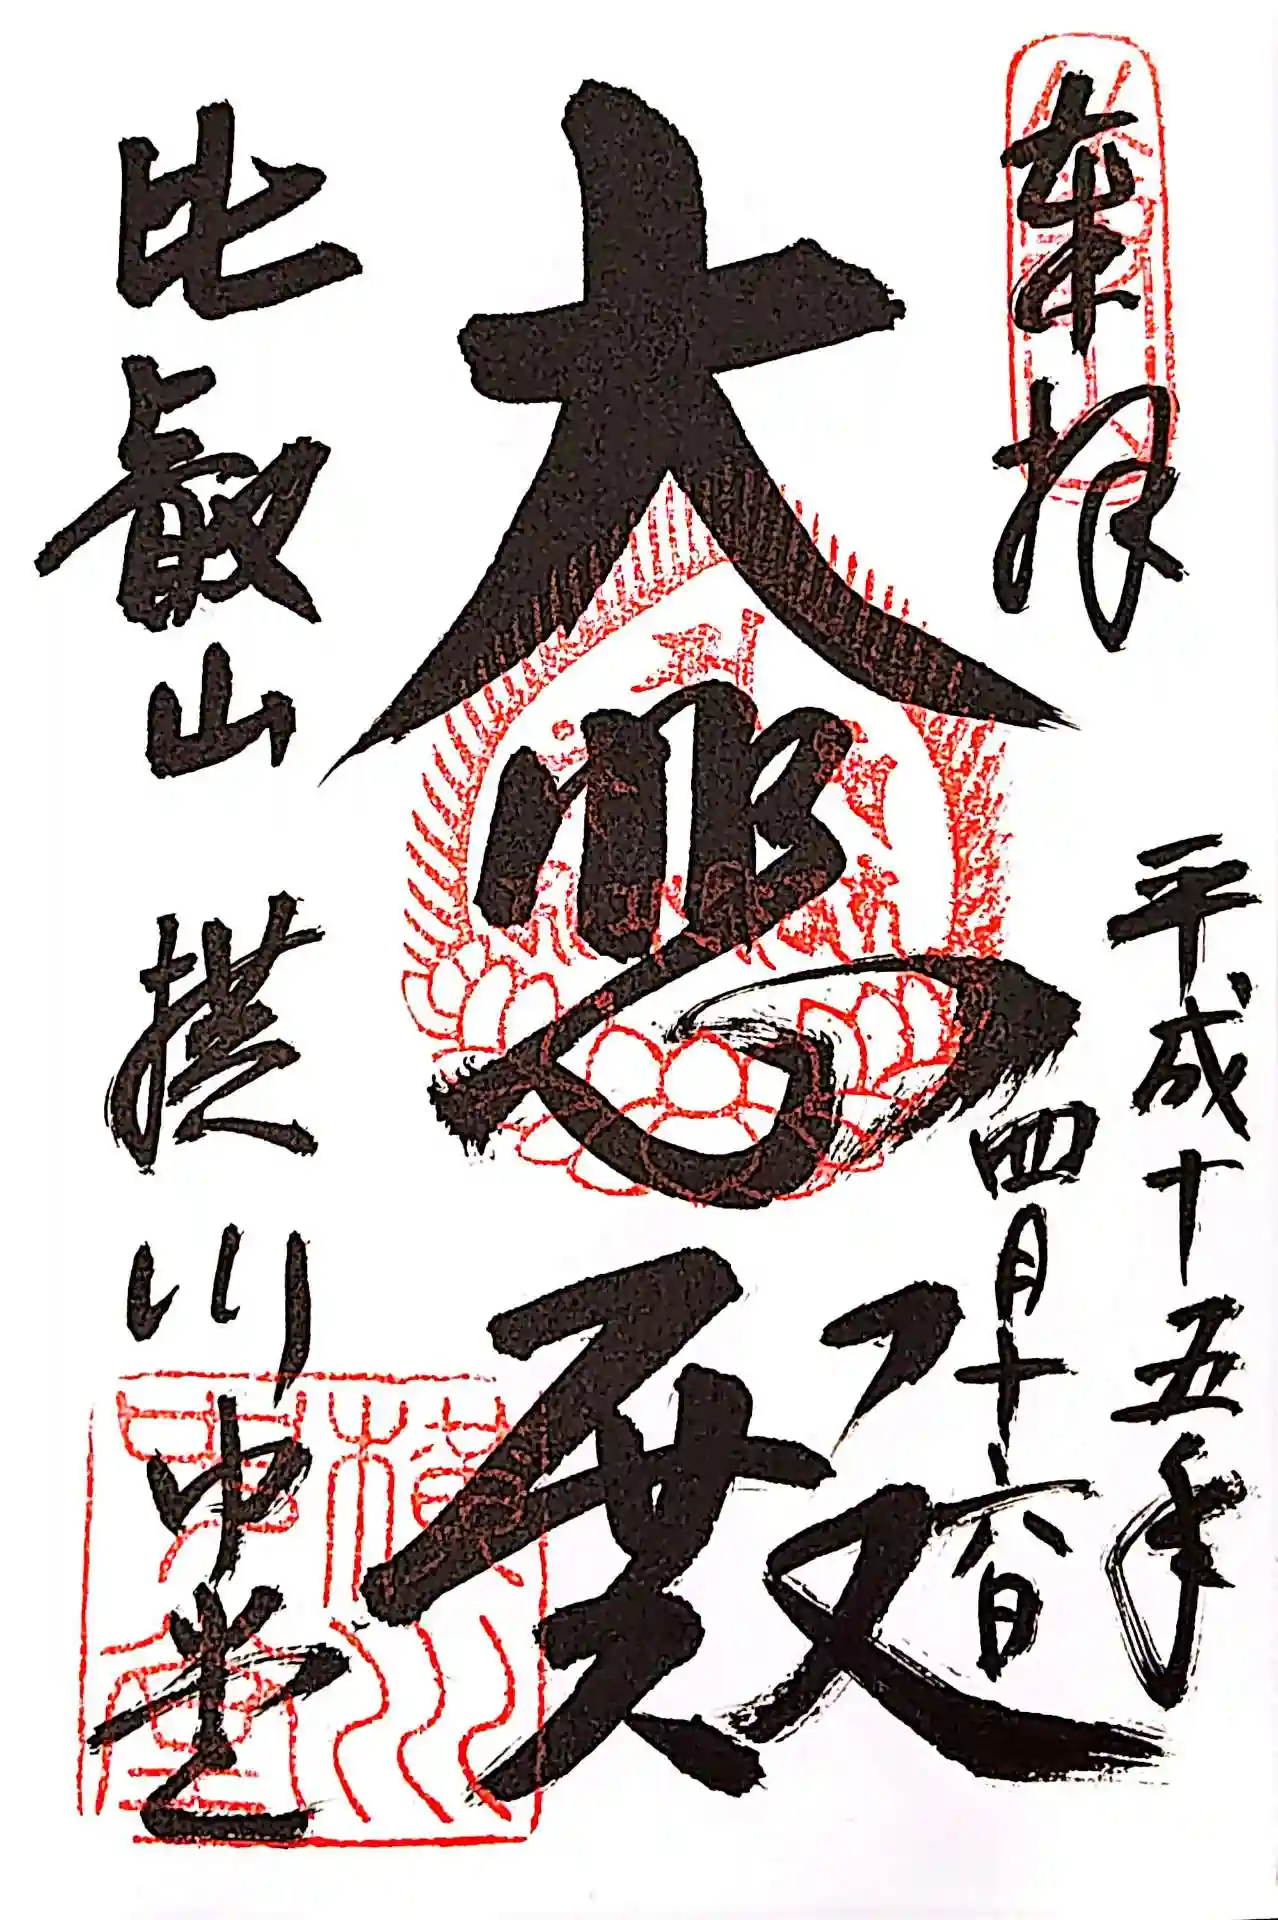 奉拝
平成十五年
四月十八日
大悲殿
比叡山 横川中堂
横川中堂